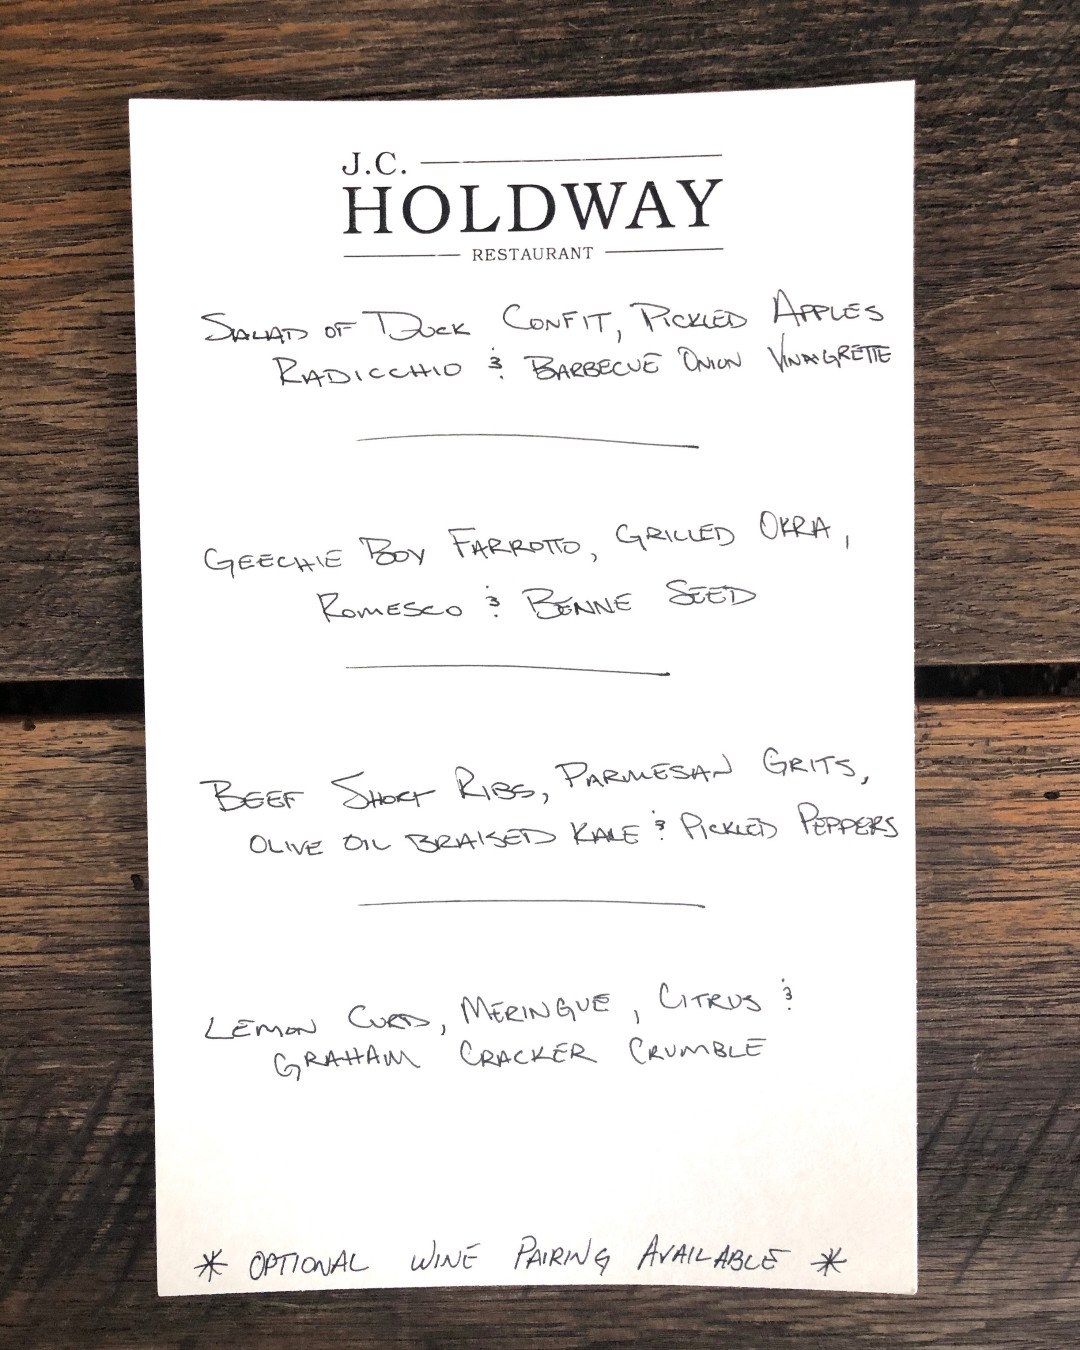 J.C.
HOLDWAY
RESTAURANT
SALAD OF DUCK CONFIT, PICKLED APPLES
RADICCHIO & BARBECUE ONION VINAIGRETTE
GEECHIE BOY FARROTTO, GRILLED OKRA,
ROMESCO & BENNE SEED
BEEF SHORT RIBS, PARMESAN GRITS,
OLIVE OIL BRAISED KALE & PICKLED PEPPERS
LEMON CURD, MERINGUE, CITRUS &
GRAHAM CRACKER CRUMBLE
* OPTIONAL WINE PAIRING AVAILABLE *